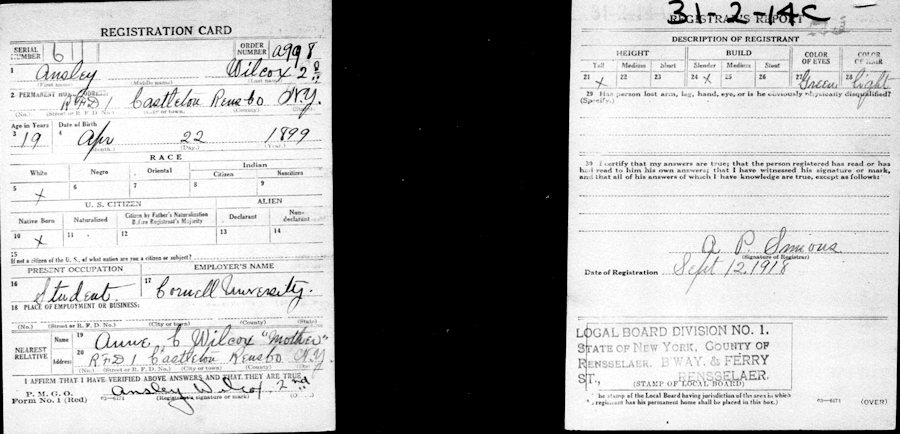 REGISTRATION CARD
SERIAL NUMBER 611 ORDER NUMBER A998
1 Ansley Wilcox 2nd
(First name) (Middle name) (Last name)
2 PERMANENT HOME ADDRESS:
RFD 1 Castleton Rensbo N.Y.
(No.) (Street or R. F. D. No.) (City or town) (County) (State)
Age in Years Date of Birth
3 19 4 Apr 22 1899
(Month.) (Day.) (Year.)
RACE
White Negro Oriental Indian
Citizen Noncitizen
5 X 6 7 8 9
U. S. CITIZEN ALIEN
Native Born Naturalized Citizen by Father's Naturalization Before Registrant's Majority Declarant Non-declarant
10 X 11 12 13 14
15
If not a citizen of the U. S., of what nation are you a citizen or subject?
PRESENT OCCUPATION EMPLOYER'S NAME
16 Student 17 Cornell University.
18 PLACE OF EMPLOYMENT OR BUSINESS:
(No.) (Street or R. F. D. No.) (City or town) (County) (State)
NEAREST RELATIVE Name 19 Anne C Wilcox "Mother"
Address 20 RFD 1 Castleton Rensbo N.Y.
(No.) (Street or R. F. D. No.) (City or town) (County) (State)
I AFFIRM THAT I HAVE VERIFIED ABOVE ANSWERS AND THAT THEY ARE TRUE
P. M. G. O.
Form No. 1 (Red) Ansley Wilcox 2nd
(Registrant's signature or mark) (OVER)
31-2-14C
REGISTRAR'S REPORT
DESCRIPTION OF REGISTRANT
HEIGHT BUILD COLOR OF EYES COLOR OF HAIR
Tall Medium Short Slender Medium Stout
21 X 22 23 24 X 25 26 27 Green 28 Light
29 Has person lost arm, leg, hand, eye, or is he obviously physically disqualified?
(Specify.)
30 I certify that my answers are true; that the person registered has read or has
had read to him his own answers; that I have witnessed his signature or mark,
and that all of his answers of which I have knowledge are true, except as follows:
A P. Simons
(Signature of Registrar)
Date of Registration Sept 12. 1918
LOCAL BOARD DIVISION NO. 1.
STATE OF NEW YORK, COUNTY OF
RENSSELAER. B'WAY. & FERRY
ST., RENSSELAER.
(STAMP OF LOCAL BOARD)
The stamp of the Local Board having jurisdiction of the area in which
the registrant has his permanent home shall be placed in this box.)
03—6171 (OVER)